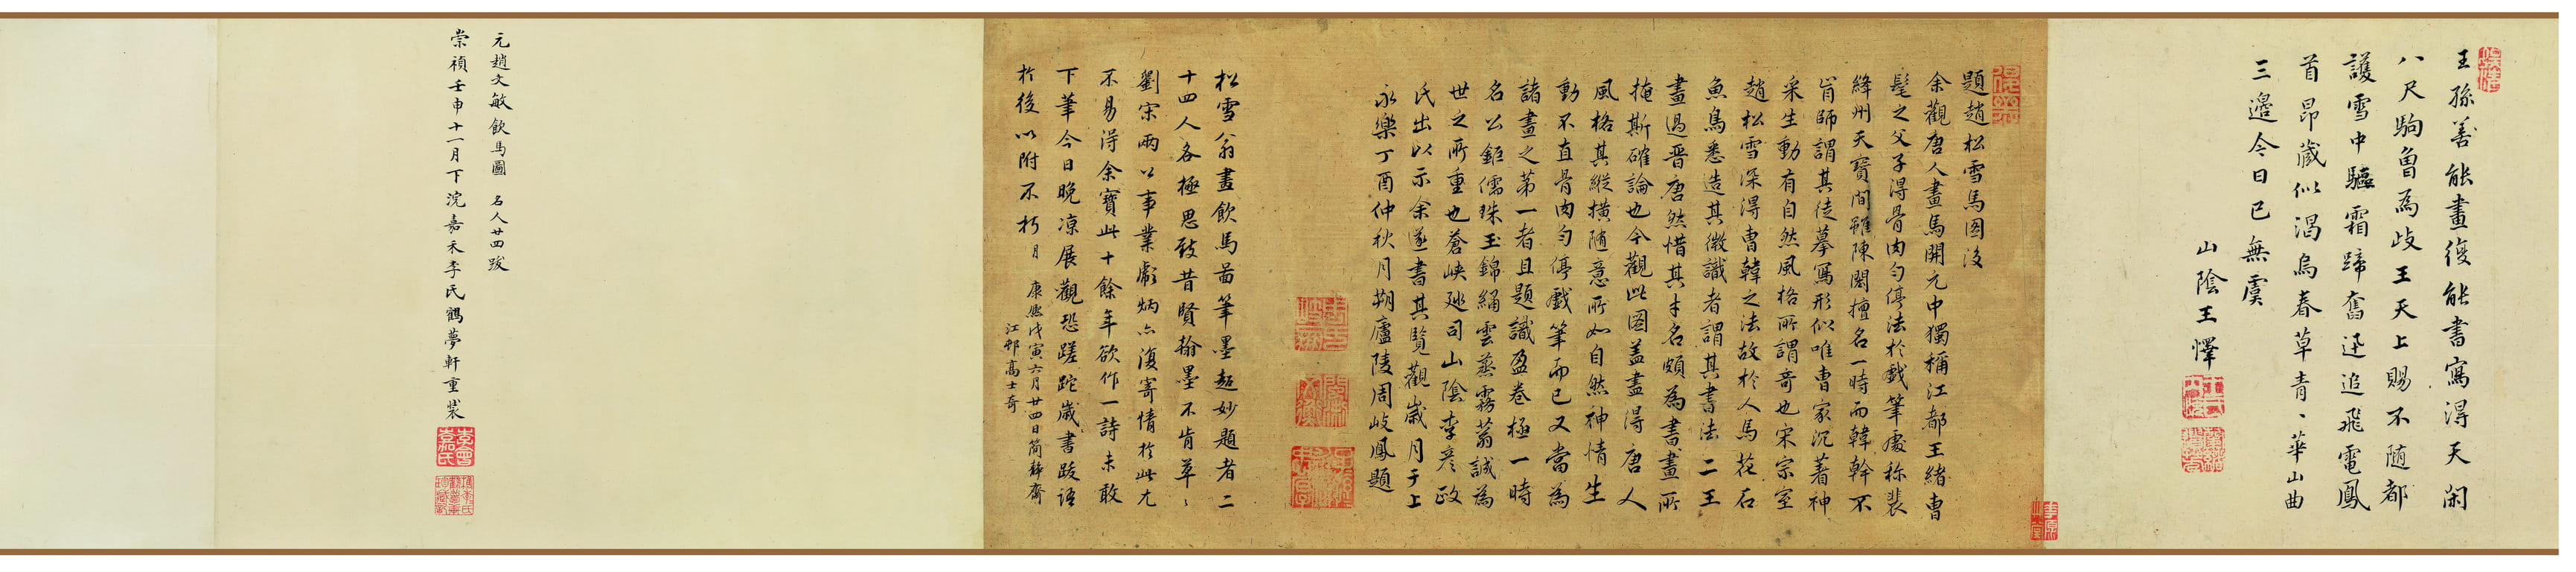 王孫善能畫復能書寫得天閑
八尺駒曾為岐王天上賜不随都
護雪中驅霜蹄奮迅追飛電鳳
首昂藏似渴烏春草青丶華山曲
三邊今日已無虞
山陰王懌
題趙松雪馬图後
余觀唐人畫馬開元中獨稱江都王緒曹
髦之父子得骨肉勻停法於戲筆處称裴
絳州天寶間雖陳閎擅名一時而韓幹不
肯師謂其徒摹寫形似唯曹家沉著神
采生動有自然風格所謂奇也宋宗室
趙松雪深得曹韓之法故於人馬花石
魚鳥悉造其微識者謂其書法二王
畫過晋唐然惜其才名頗為書畫所
掩斯確論也今觀此图盖盡得唐人
風格其縱横隨意所如自然神情生
動不直骨肉勻停戲筆而已又當為
諸畫之第一者且題識盈卷極一時
名公鉅儒珠玉錦繡雲蒸霧蓊誠為
世之所重也蒼峡廵司山陰李彦政
氏出以示余遂書其覧觀歲月于上
永樂丁酉仲秋月朔廬陵周岐鳳題
松雪翁畫飲馬啚筆墨超妙題者二
十四人各極思致昔賢翰墨不肯草丶
劉宋兩公事業彪炳亦復寄情於此尤
不易得余寶此十餘年欲作一詩未敢
下筆今日晚凉展觀恐蹉跎歲書跋語
於後以附不朽
康熙戊寅六月廿四日簡靜齋
江邨高士奇
元趙文敏飲馬圖 名人廿四跋
崇禎壬申十一月下浣嘉禾李氏鶴夢軒重裝